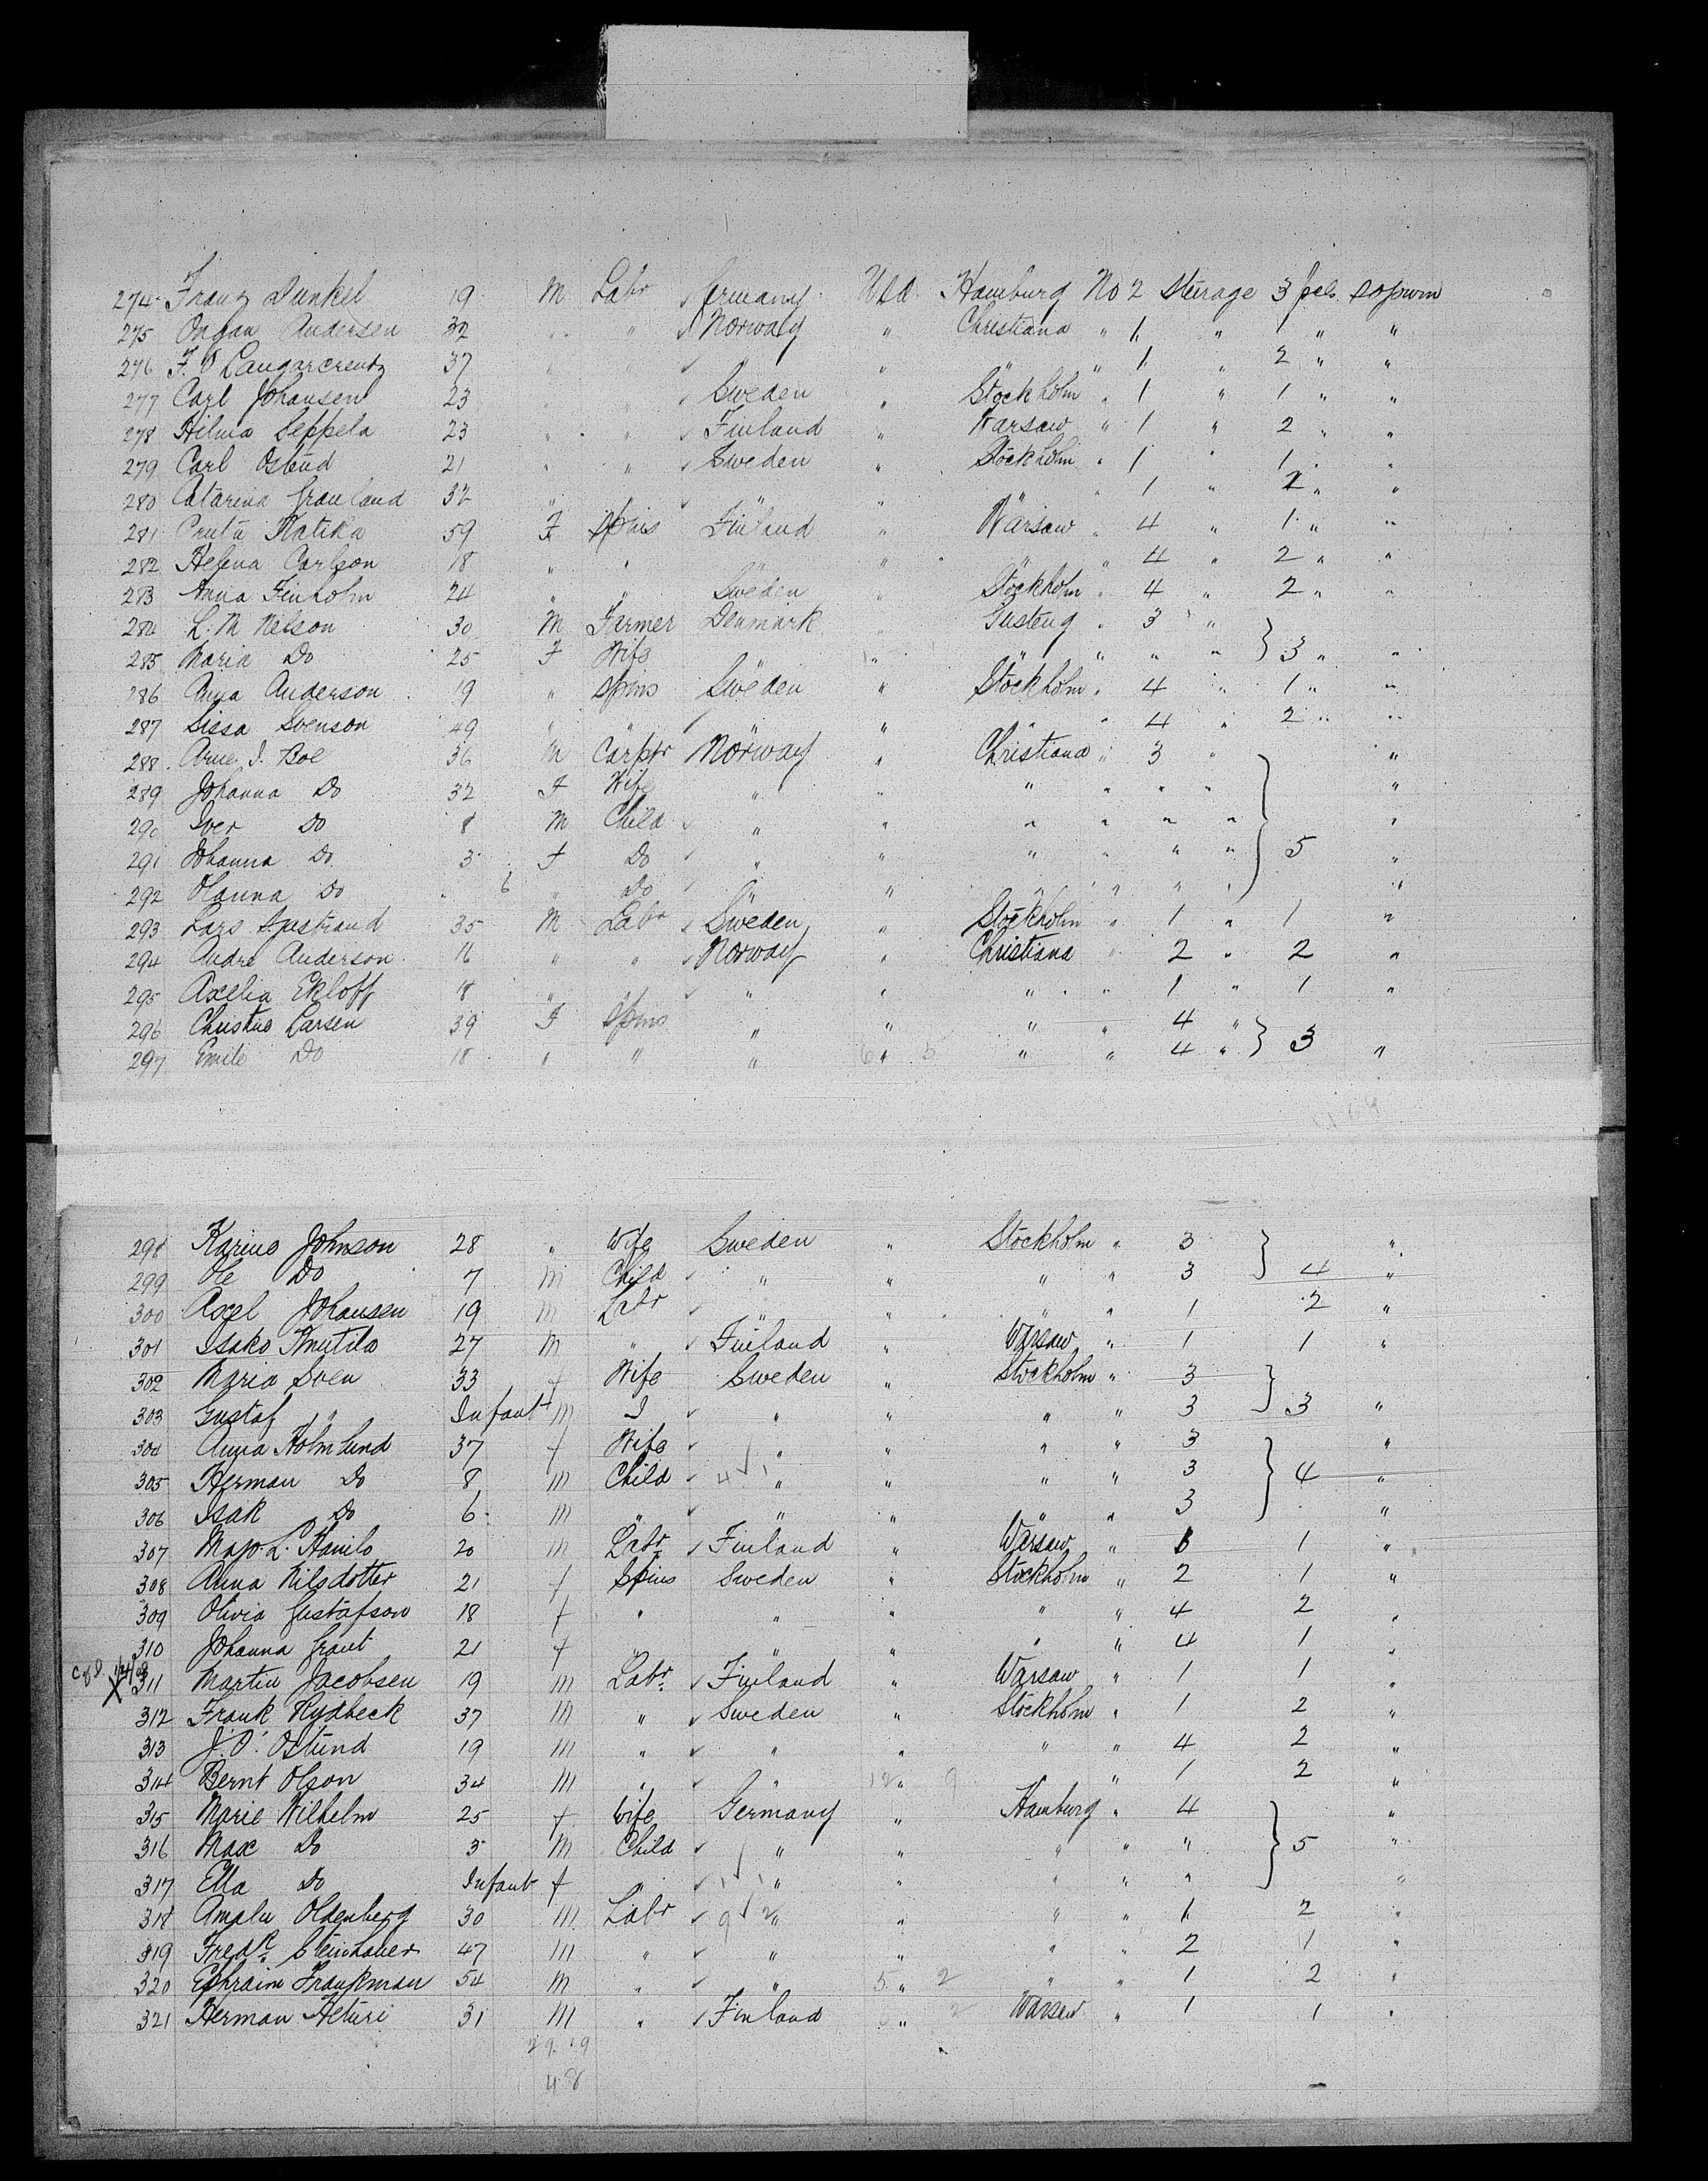 274 Franz Dunkel 19 M Labr ✓ Germany USA Hamburg No 2 Sterage 3 pcls sojourn
275 Andersen 32 " " ✓ Norway " Christiana " 1 " 1 " "
276 F. O 37 " " ✓ " " " " 1 " 2 " "
277 Carl Johansen 23 " " ✓ Sweden " Stockholm " 1 " 1 " "
278 Hilma Seppela 23 " " ✓ Finland " Warsaw " 1 " 2 " "
279 Carl Ostend 21 " " ✓ Sweden " Stockholm " 1 " 1 " "
280 Catarina Granland 32 " " ✓ " " " " 1 " 2 " "
281 Katika 59 F Spins Finland " Warsaw " 4 " 1 " "
282 Helena Carlson 18 " " " " " " 4 " 2 " "
283 Anna Finholm 24 " " Sweden " Stockholm " 4 " 2 " "
284 L. M Nelson 30 M Farmer Denmark " " 3 "
285 Maria Do 25 F Wife " " " " " " } 3 " "
286 Anna Anderson 19 " Spins Sweden " Stockholm " 4 " 1 " "
287 Sissa Svenson 49 " " ✓ " " " " 4 " 2 " "
288 Arne I. Boe 36 M Carptr Norway " Christiana " 3 " "
289 Johanna Do 32 F Wife " " " " " " "
290 Iver Do 8 M Child ✓ " " " " " " "
291 Johanna Do 3 F Do ✓ " " " " " " } 5 "
292 Olanna Do 6 " Do ✓ " " " " " " "
293 Lars 35 M Labr ✓ Sweden " Stockholm " 1 " 1 "
294 Andre Anderson 16 " " ✓ Norway " Christiana " 2 " 2 "
295 Axelia Ekloff 18 " " ✓ " " " " 1 " 1 "
296 Christine Larsen 39 F Spins " " " " 4 "
297 Emile Do 18 " " " 6 " 5 " " 4 " } 3 "
298 Karine Johnson 28 " Wife Sweden " Stockholm " 3 "
299 Ole Do 7 m Child ✓ " " " " 3 } 4 "
300 Axel Johansen 19 m Labr ✓ " " " " 1 2 "
301 Isako 27 M " ✓ Finland " Warsaw " 1 1 "
302 Maria Sven 33 f Wife Sweden " Stockholm " 3
303 Gustaf " Infant m D ✓ " " " " 3 } 3 "
304 Anna Holmlund 37 f Wife ✓ " " " " 3 "
305 Herman Do 8 m Child ✓ 4 ✓ 1 " " " " 3 } 4 "
306 Isak Do 6 m " ✓ " " " " 3 "
307 L. 20 m Labr ✓ Finland " Warsaw " 1 1 "
308 Anna Nilsdotter 21 f Spins Sweden " Stockholm " 2 1 "
309 Olivia Gustafson 18 f " " " " " 4 2 "
310 Johanna Grant 21 f " " " " " 4 1 "
X 311 Martin Jacobsen 19 m Labr ✓ Finland " Warsaw " 1 1 "
312 Frank Rydbeck 37 m " ✓ Sweden " Stockholm " 1 2 "
313 J. O. Ostund 19 m " ✓ " " " " 4 2 "
314 Bernt Olson 34 m " ✓ " 12 " 9 " 1 2 "
315 Marie Wilhelm 25 f Wife Germany " Hamburg " 4 "
316 Max Do 3 m Child ✓ " " " " " } 5 "
317 Ella Do Infant f ✓ 1 ✓ 1 " " " " " "
318 Oldenberg 30 m Labr ✓ 9 ✓ 2 " " " " 1 2 "
319 Fredk Steinhauer 47 m " ✓ " " " " 2 1 "
320 Ephraim Frankman 54 m " ✓ " 5 " 2 " " 1 2 "
321 Herman Aeturi 31 m " ✓ Finland " 2 Warsaw " 1 1 "
29 19
48